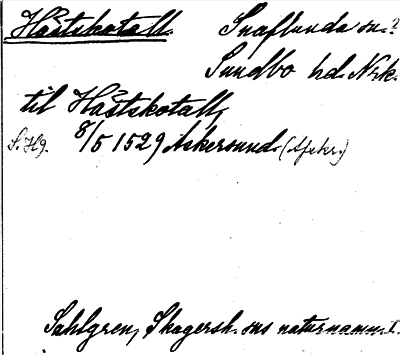 Hästskotall. Snaflunda sn.?
Sundbo hd. Nrk.
til Håstskotall,
S. Hg. 8/5 1529 Askersund. (Afskr.)
Sahlgren, Skagersh. sns naturnamn I.